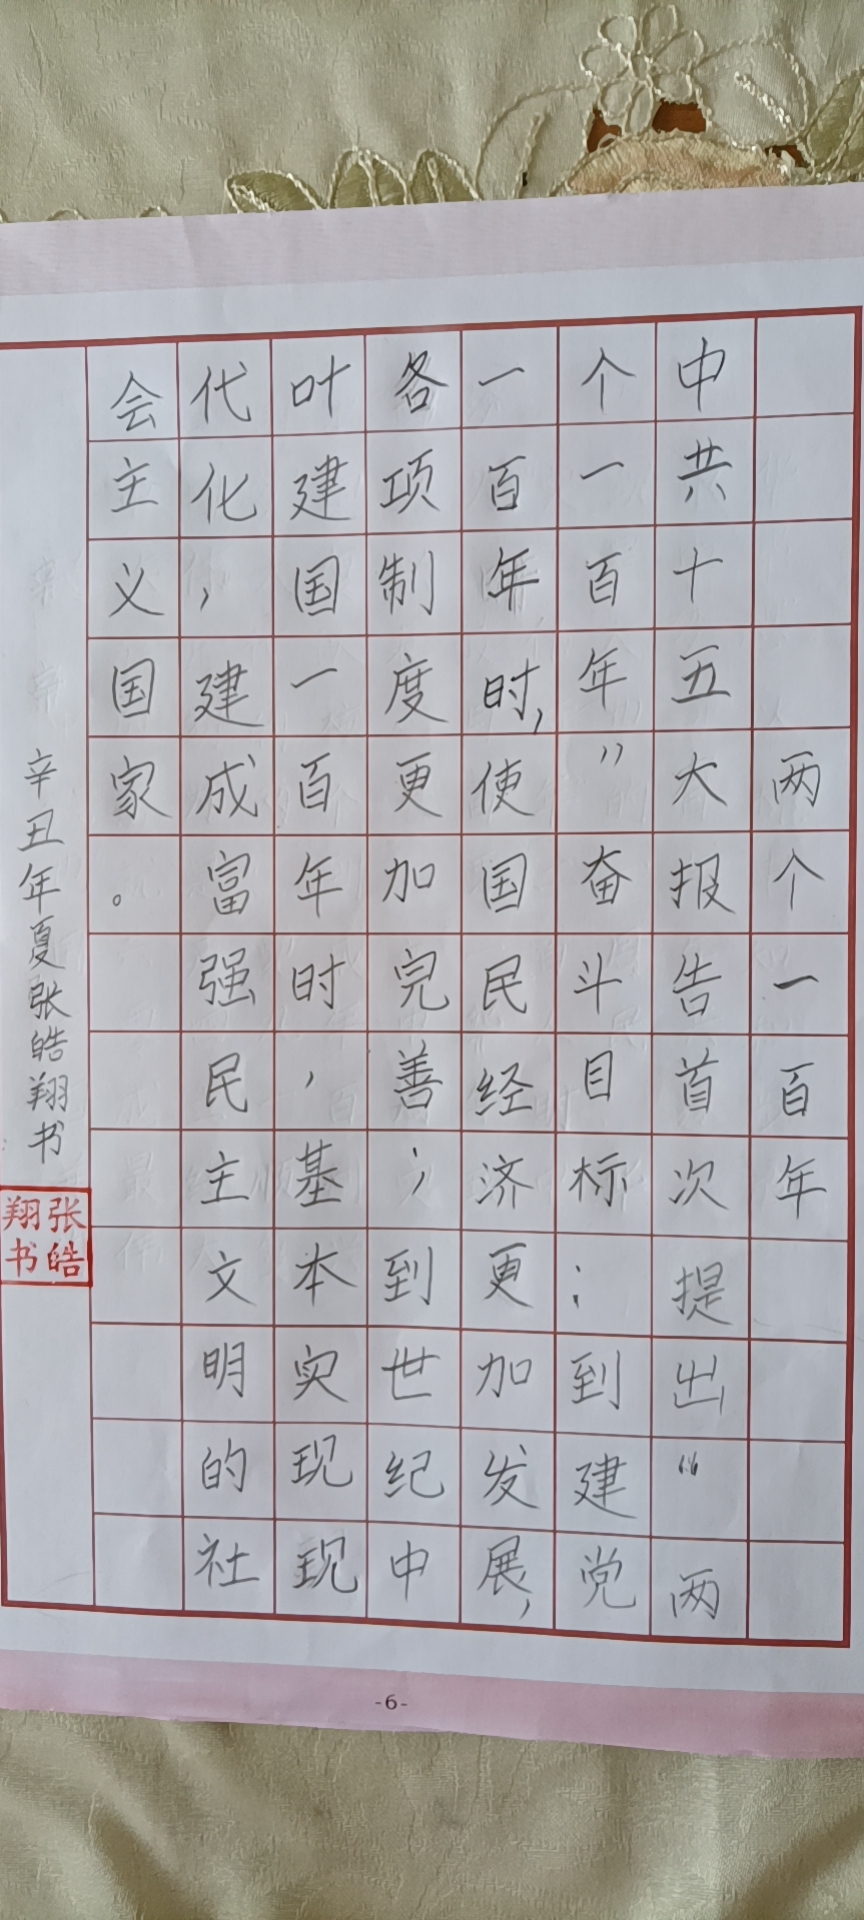 两个一百年
中共十五大报告首次提出“两
个一百年”奋斗目标：到建党
一百年时，使国民经济更加发展，
各项制度更加完善；到世纪中
叶建国一百年时，基本实现现
代化，建成富强民主文明的社
会主义国家。
辛丑年夏张皓翔书
张皓
翔书
-6-